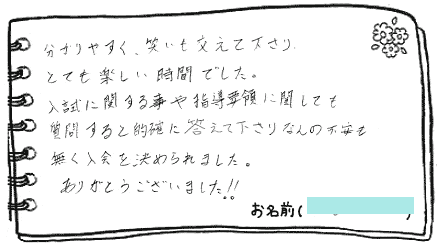 分かりやすく、笑いも交えて下さり
とても楽しい時間でした。
入試に関する事や指導要領に関しても
質問すると的確に答えて下さりなんの不安も
無く入会を決められました。
ありがとうございました!!
お名前( )